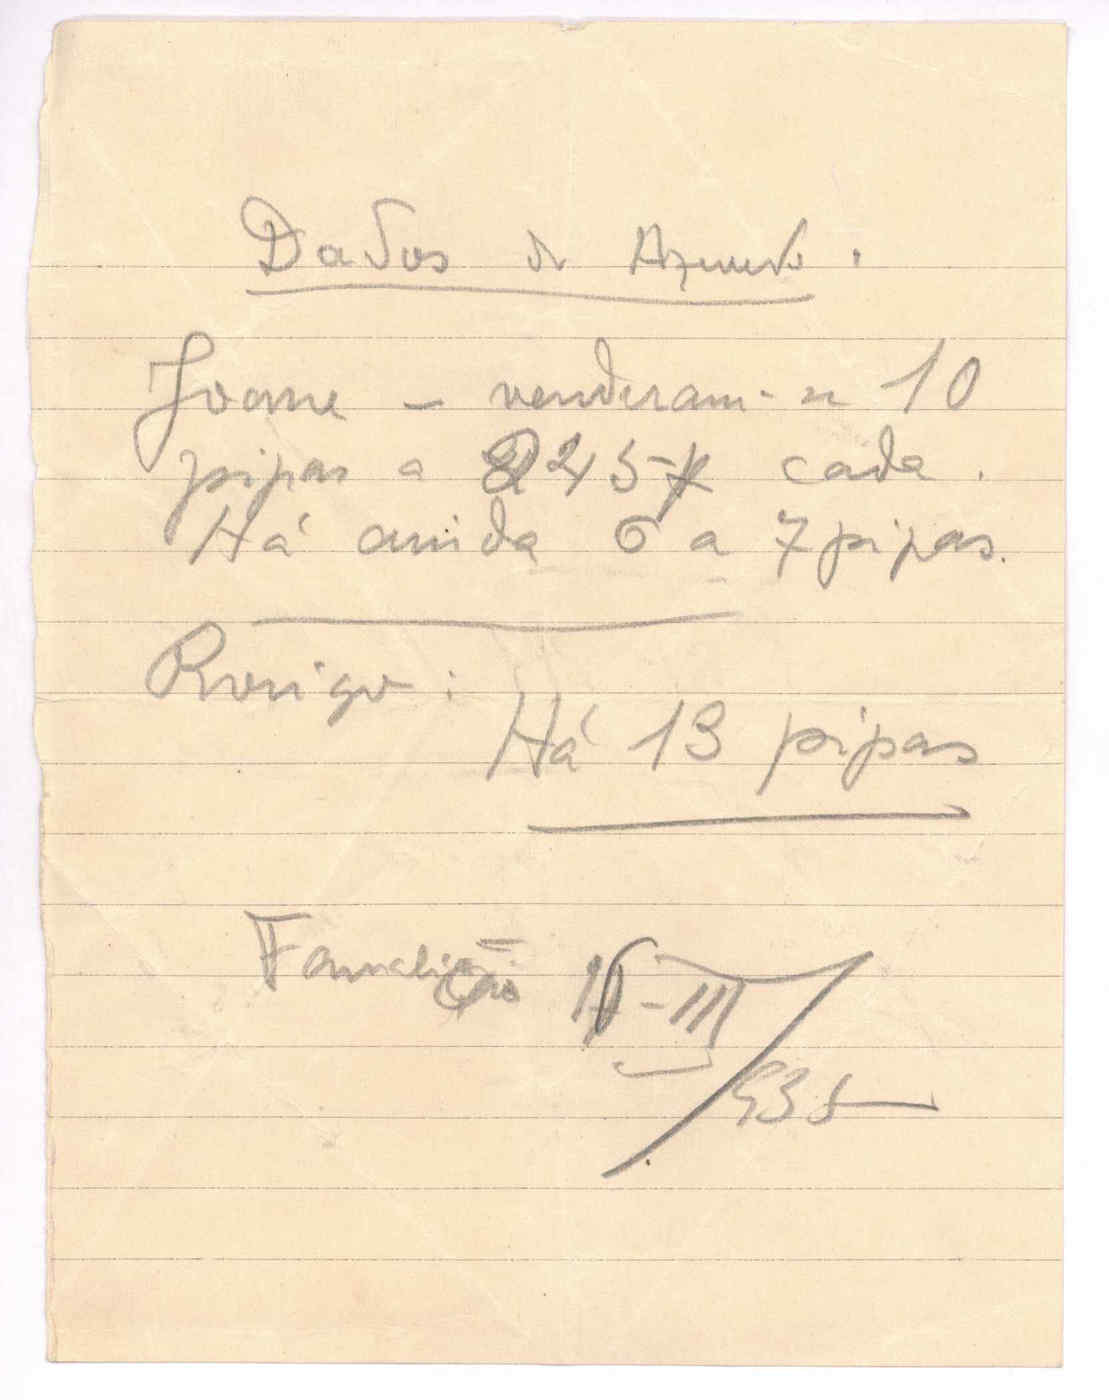 Dados de Azevedo.
Joane – venderam-se 10
pipas a 245$ cada.
Há ainda 6 a 7 pipas.
Rorigo:
Há 13 pipas
Famalicão -III
935